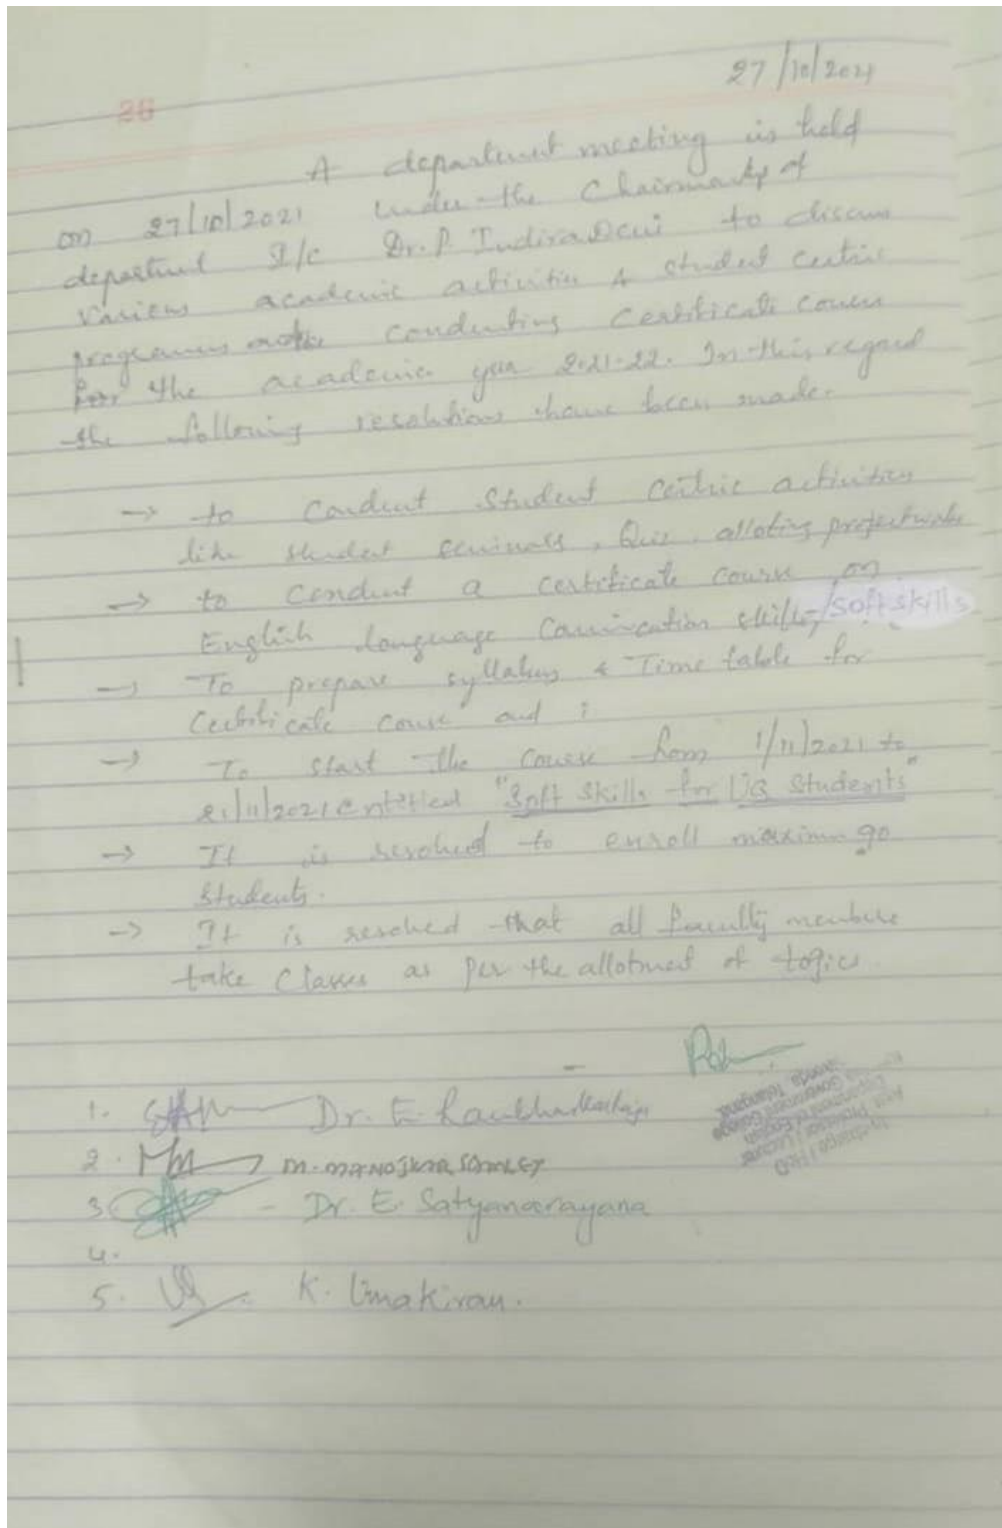 27/10/2021
38
A department meeting is held
on 27/10/2021 under the Chairmanship of
department I/c Dr. P. Indira Devi to discuss
various academic activities & student centric
programmes conducting Certificate courses
for the academic year 2021-22. In this regard
the following resolutions have been made.
→ to conduct Student centric activities
like student seminars, Quiz, alloting project works
→ to conduct a certificate course on
English language Comunication skills/Soft skills
→ To prepare syllabus & Time table for
Certificate course and ;
→ To start the course from 1/11/2021 to
21/11/2021 entitled "Soft Skills for UG Students"
→ It is resolved to enroll maximum 90
students.
→ It is resolved that all faculty members
take classes as per the allotment of topics
Incharge / HoD
Department of English
Government College
Telangana
1. Dr. E.
2. M.
3. - Dr. E. Satyanarayana
4.
5. K. Umakiran.